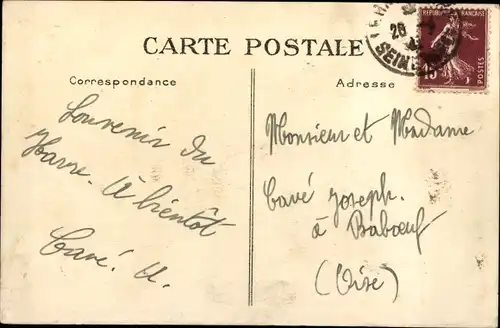 CARTE POSTALE
Correspondance
Souvenir du
Havre. A bientôt
Cavé. A.
Adresse
Monsieur et Madame
Cavé Joseph.
à Babœuf
(Oise)
REPUBLIQUE FRANÇAISE
15
POSTES
28
SEINE